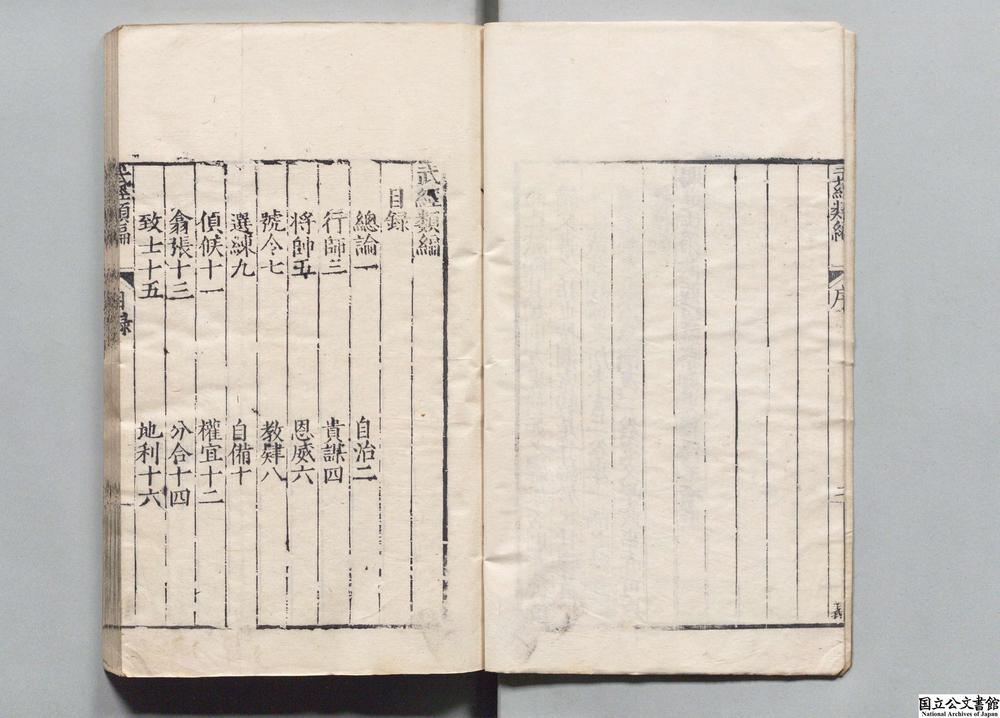 武經類編
序
二
義
武經類編
目録
總論一 自治二
行師三 貴謀四
将帥五 恩威六
號令七 教肄八
選練九 自備十
偵候十一 權宜十二
翕張十三 分合十四
致士十五 地利十六
武經類編 目録
一
国立公文書館
National Archives of Japan